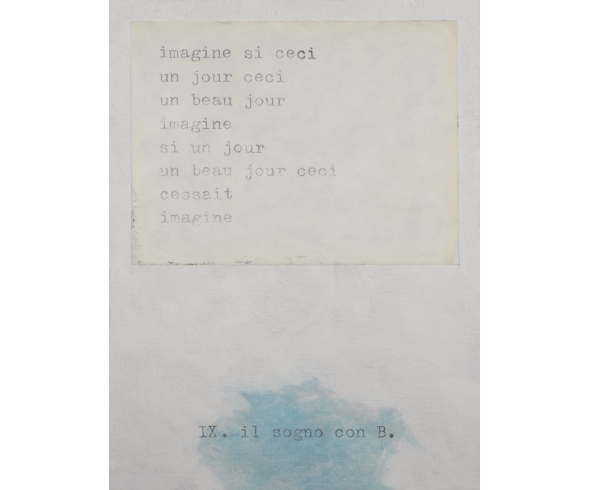 imagine si ceci
un jour ceci
un beau jour
imagine
si un jour
un beau jour ceci
cessait
imagine
IX. il sogno con B.